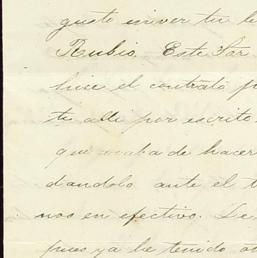 gusto en ver tu le
Rubio. Este Sor
hice el contrato p
ti alli por escrito.
que acaba de hacer
dandolo ante el t
nos en efectivo. De
pues ya he tenido